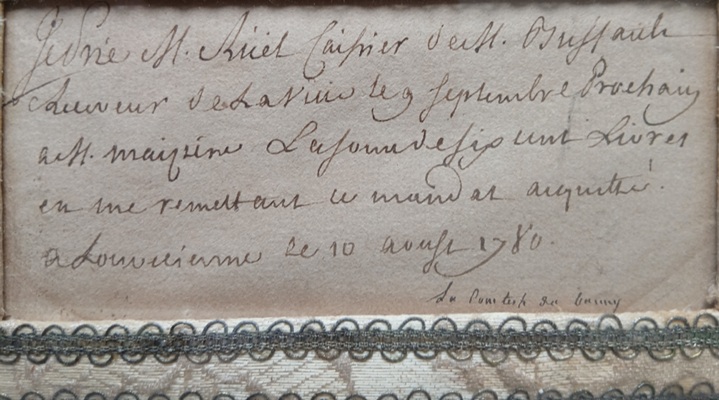 Je Prie M. Ruel Caissier de M. Buffault
Receveur de La Ville le 9 septembre Prochain
a M. La some de six cent Livres
en me remettant ce mandat acquitté.
a Louvecienne Le 10 aoust 1780.
La Comtesse du Barry